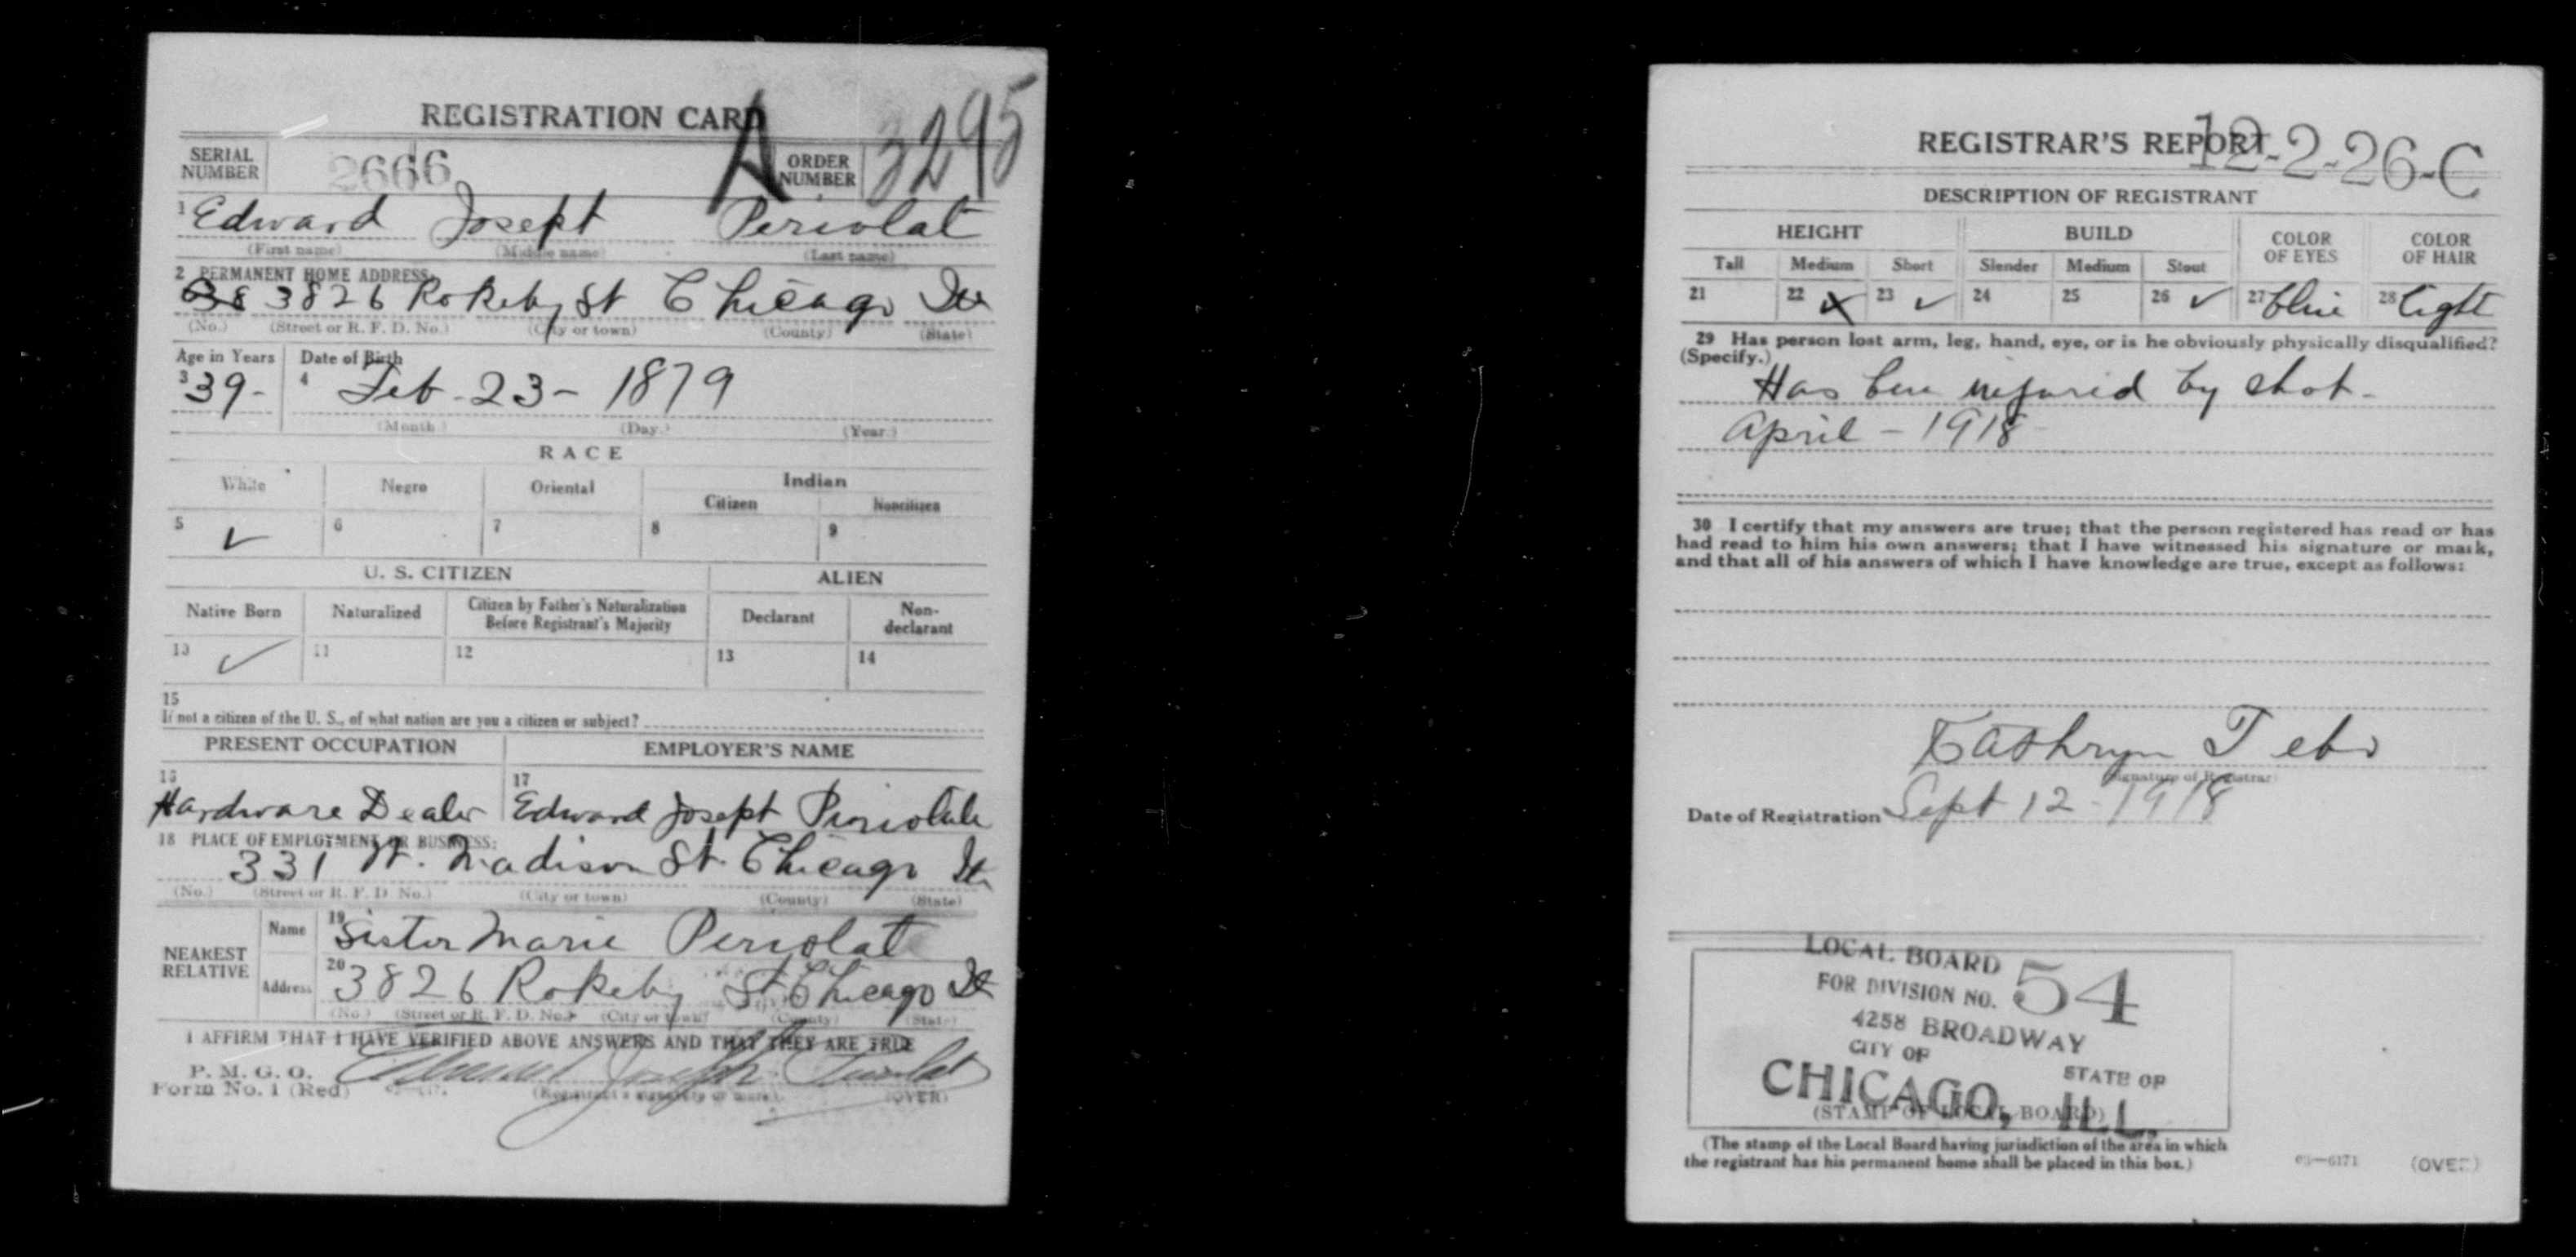 REGISTRATION CARD
SERIAL NUMBER 2666 A ORDER NUMBER 3295
1 Edward Joseph Periolat
(First name) (Middle name) (Last name)
2 PERMANENT HOME ADDRESS:
3826 Rokeby St Chicago Ill
(No.) (Street or R. F. D. No.) (City or town) (County) (State)
Age in Years Date of Birth
3 39- 4 Feb - 23 - 1879
(Month) (Day) (Year)
RACE
White Negro Oriental Indian
Citizen Noncitizen
5 ✓ 6 7 8 9
U. S. CITIZEN ALIEN
Native Born Naturalized Citizen by Father's Naturalization Before Registrant's Majority Declarant Non-declarant
10 ✓ 11 12 13 14
15
If not a citizen of the U. S., of what nation are you a citizen or subject?
PRESENT OCCUPATION EMPLOYER'S NAME
16 17
Hardware Dealer Edward Joseph
18 PLACE OF EMPLOYMENT OR BUSINESS:
331 W. Madison St. Chicago Ill
(No.) (Street or R. F. D. No.) (City or town) (County) (State)
NEAREST RELATIVE
Name 19 Sister Marie Periolat
Address 20 3826 Rokeby St Chicago Ill
(No.) (Street or R. F. D. No.) (City or town) (County) (State)
I AFFIRM THAT I HAVE VERIFIED ABOVE ANSWERS AND THAT THEY ARE TRUE
P. M. G. O.
Form No. 1 (Red) Edward Joseph Periolat
(Registrant's signature or mark) (OVER)
REGISTRAR'S REPORT
12-2-26-C
DESCRIPTION OF REGISTRANT
HEIGHT BUILD COLOR OF EYES COLOR OF HAIR
Tall Medium Short Slender Medium Stout
21 22 x 23 ✓ 24 25 26 ✓ 27 blue 28 light
29 Has person lost arm, leg, hand, eye, or is he obviously physically disqualified?
(Specify.)
Has been injured by shot -
April - 1918
30 I certify that my answers are true; that the person registered has read or has
had read to him his own answers; that I have witnessed his signature or mark,
and that all of his answers of which I have knowledge are true, except as follows:
Kathryn
(Signature of Registrar)
Date of Registration Sept 12 - 1918
LOCAL BOARD
FOR DIVISION NO. 54
4258 BROADWAY
CITY OF STATE OF
CHICAGO, ILL.
(STAMP OF LOCAL BOARD)
(The stamp of the Local Board having jurisdiction of the area in which
the registrant has his permanent home shall be placed in this box.)
03—6171 (OVER)